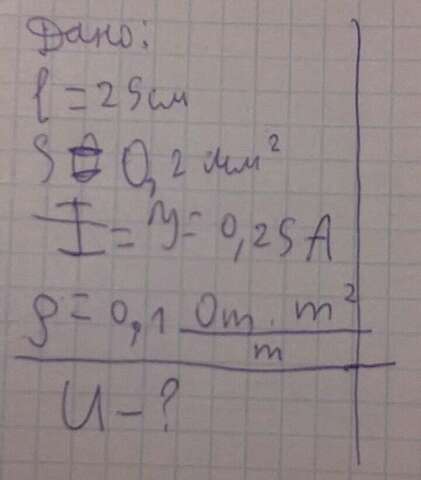 Дано:
l = 25 см
S = 0,2 мм²
I = 0,25 A
ρ = 0,1 Om · m² / m
U - ?